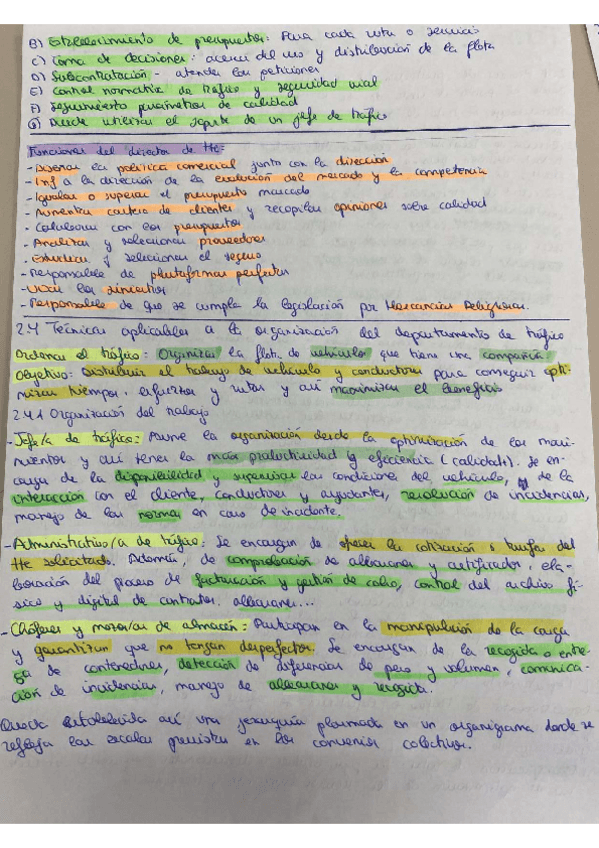 B) Establecimiento de presupuestos: Para cada ruta o servicio
C) Toma de decisiones: acerca del uso y distribución de la flota
D) Subcontratación - atender las peticiones
E) Control normativa de tráfico y seguridad vial
F) Seguimiento parámetros de calidad
G) Puede utilizar el soporte de un jefe de tráfico
Funciones del director de Hc:
- Diseñar la política comercial junto con la dirección
- Inf a la dirección de la evolución del mercado y la competencia
- Igualar o superar el presupuesto marcado
- Aumentar cartera de clientes y recopilar opiniones sobre calidad
- Colaborar con los presupuestos
- Analizar y seleccionar proveedores
- Estudiar y seleccionar el seguro
- Responsable de plataformas perfectas
- los siniestros
- Responsable de que se cumpla la legislación por Mercancías Peligrosas.
2.4 Técnicas aplicables a la organización del departamento de tráfico
Ordenar el tráfico: Organizar la flota de vehículos que tiene una compañía.
Objetivo: distribuir el trabajo de vehículo y conductores para conseguir opti-
mizar tiempos, esfuerzos y rutas y así maximizar el beneficio
2.4.1 Organización del trabajo
- Jefe/a de tráfico: Asume la organización desde la optimización de los movi-
mientos y así tener la más productividad y eficiencia (calidad). Se en-
carga de la disponibilidad y supervisar las condiciones del vehículo, y de la
interacción con el cliente, conductores y ayudantes, resolución de incidencias,
manejo de las normas en caso de incidente.
- Administrativo/a de tráfico: Se encargan de ofrecer la cotización o tarifas del
Hc solicitado. Además, de comprobación de albaranes y certificados, ela-
boración del proceso de facturación y gestión de cobro, control del archivo fí-
sico y digital de contratos, albaranes...
- Chóferes y mozos/as de almacén: Participan en la manipulación de la carga
y garantizan que no tengan desperfectos. Se encargan de la recogida o entre-
ga de contenedores, detección de diferencias de peso y volumen, comunica-
ción de incidencias, manejo de albaranes y recogida.
Queda establecida así una jerarquía plasmada en un organigrama donde se
refleja las escalas previstas en los convenios colectivos.